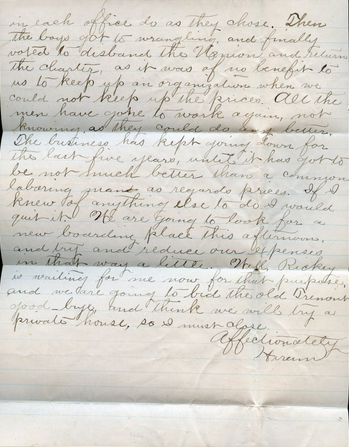 in each office do as they chose. Then
the boys got to wrangling, and finally
voted to desband the Union and return
the charter, as it was of no benefit to
us to keep up an organization when we
could not keep up the prices. All the
men have gone to work again, not
knowing as they could do any better.
The business has kept going down for
the last five years, until it has got to
be not much better than a common
laboring mans as regards prices. If I
knew of anything else to do I would
quit it. We are going to look for a
new boarding place this afternoon,
and try and reduce our expenses
in that way a little. Well, Rickey
is waiting for me now for that purpose,
and we are going to bid the old Tremont
good-bye, and think we will try a
private house, so I must close.
Affectionately
Hiram